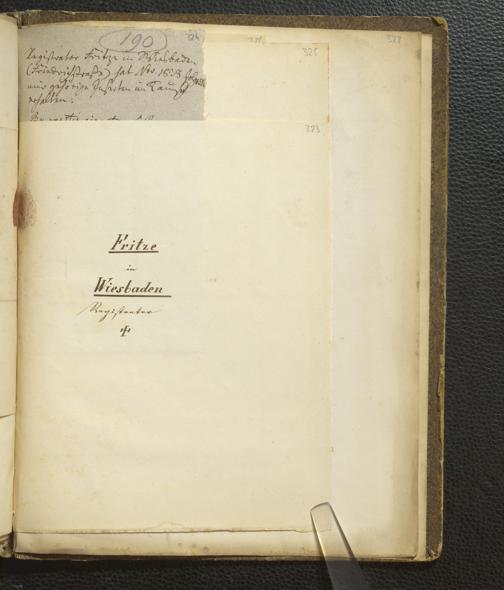 190
324
325
323
Registrator Fritze in Wiesbaden
(Friedrichstraße) hat Nov. 1838
mir gehörige Insecten im Tausch
erhalten:
Fritze
in
Wiesbaden
Registrator